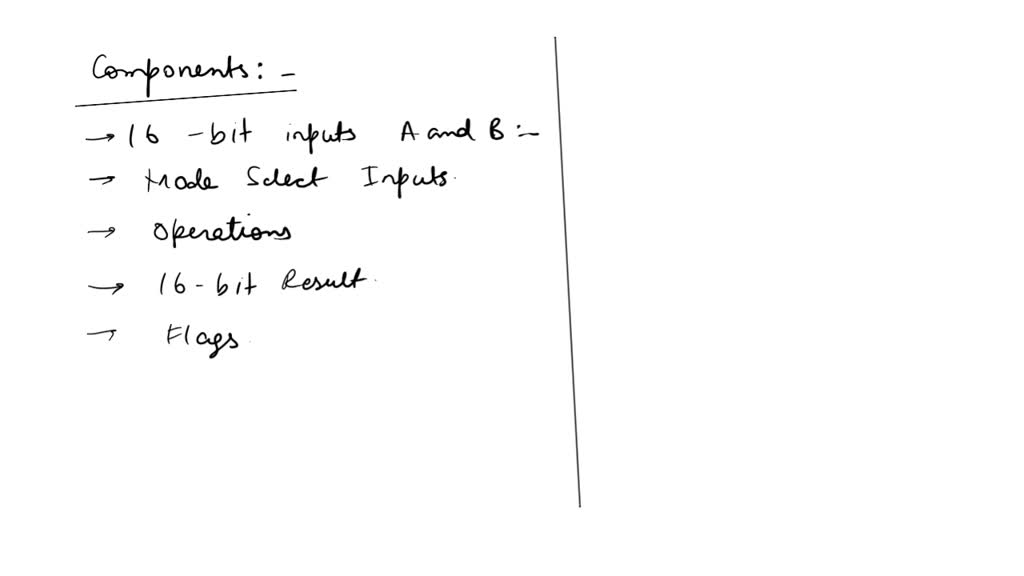 Components: -
→ 16 -bit inputs A and B :-
→ Mode Select Inputs.
→ Operations
→ 16-bit Result.
→ Flags